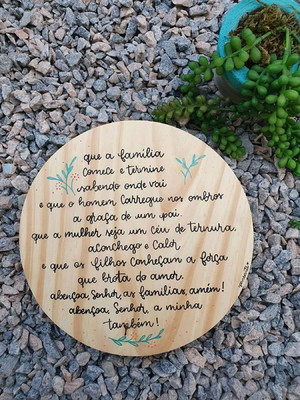 que a família
comece e termine
sabendo onde vai
e que o homem carregue nos ombros
a graça de um pai.
que a mulher seja um céu de ternura,
aconchego e calor,
e que os filhos conheçam a força
que brota do amor.
abençoa, Senhor, as famílias, amém!
abençoa, Senhor, a minha
também!